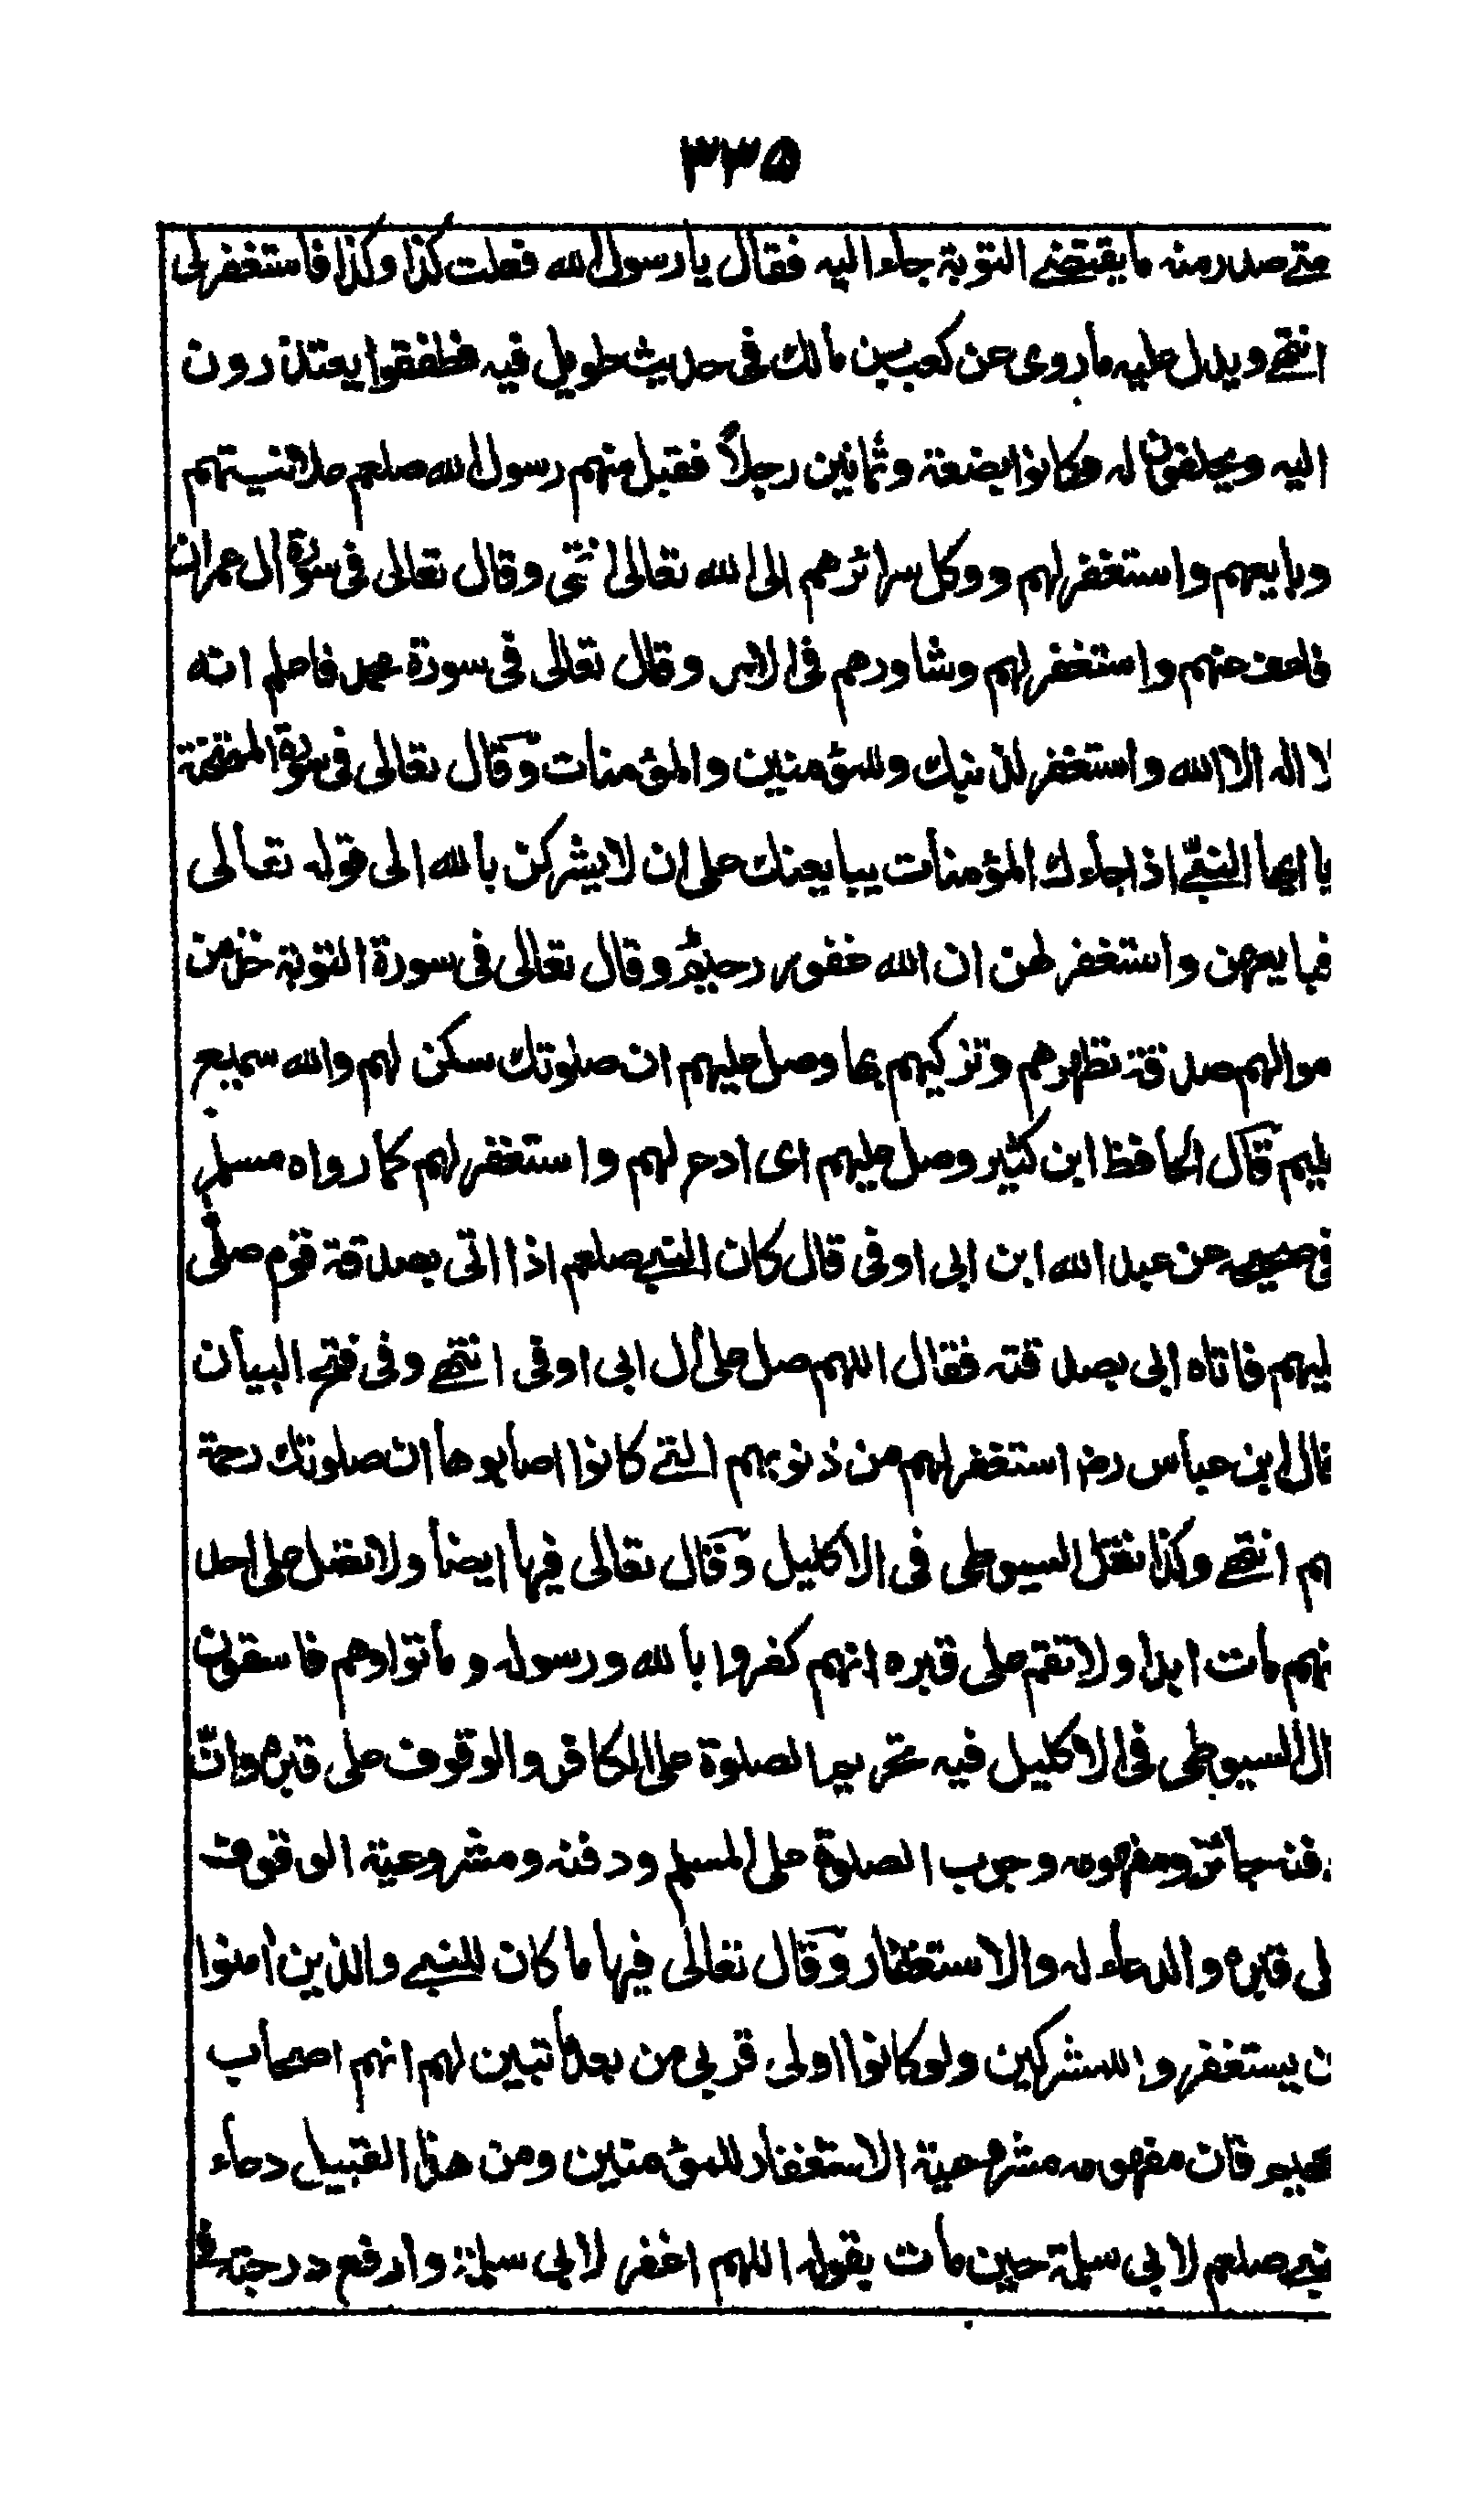 ٣٣٥
متى صدر منه ما يقتضى التوبة جاء اليه فقال يا رسول الله فعلت كذا وكذا فاستغفر لى
انتهى ويدل عليه ما روى عن كعب بن مالك فى حديث طويل فيه فطفقوا يعتذرون
اليه ويحلفون له وكانوا بضعة وثمانين رجلاً فقبل منهم رسول الله صلعم علانيتهم
وبايعهم واستغفر لهم ووكل سرائرهم الى الله تعالى انتهى وقال تعالى فى سورة ال عمران
فاعف عنهم واستغفر لهم وشاورهم فى الامر وقال تعالى فى سورة محمد فاعلم انه
لا اله الا الله واستغفر لذنبك وللمؤمنين والمؤمنات وقال تعالى فى سورة الممتحنة
يا ايها النبى اذا جاءك المؤمنات يبايعنك على ان لا يشركن بالله الى قوله تعالى
فبايعهن واستغفر لهن ان الله غفور رحيم وقال تعالى فى سورة التوبة خذ من
موالهم صدقة تطهرهم وتزكيهم بها وصل عليهم ان صلوتك سكن لهم والله سميع
ليم قال الحافظ ابن كثير وصل عليهم اى ادع لهم واستغفر لهم كما رواه مسلم
فى صحيحه عن عبد الله ابن ابى اوفى قال كان النبى صلعم اذا اتى بصدقة قوم صلى
ليهم فاتاه ابى بصدقته فقال اللهم صل على ال ابى اوفى انتهى وفى فتح البيان
قال ابن عباس رض استغفر لهم من ذنوبهم التى كانوا اصابوها ان صلوتك رحمة
هم انتهى وكذا نقل السيوطى فى الاكليل وقال تعالى فيها ايضا ولا تصل على احد
نهم مات ابدا ولا تقم على قبره انهم كفروا بالله ورسوله وماتوا وهم فاسقون
ال السيوطى فى الاكليل فيه تحريم الصلوة على الكافر والوقوف على قبره وان
دفنه جائز ومفهومه وجوب الصلوة على المسلم ودفنه ومشروعية الوقوف
لى قبره والدعاء له والاستغفار وقال تعالى فيها ما كان للنبى والذين أمنوا
ن يستغفروا للمشركين ولو كانوا اولى قربى من بعد ما تبين لهم انهم اصحاب
لجحيم فان مفهومه مشروعية الاستغفار للمؤمنين ومن هذا القبيل دعاء
نبى صلعم لابى سلمة حين مات بقوله اللهم اغفر لابى سلمة وارفع درجته فى